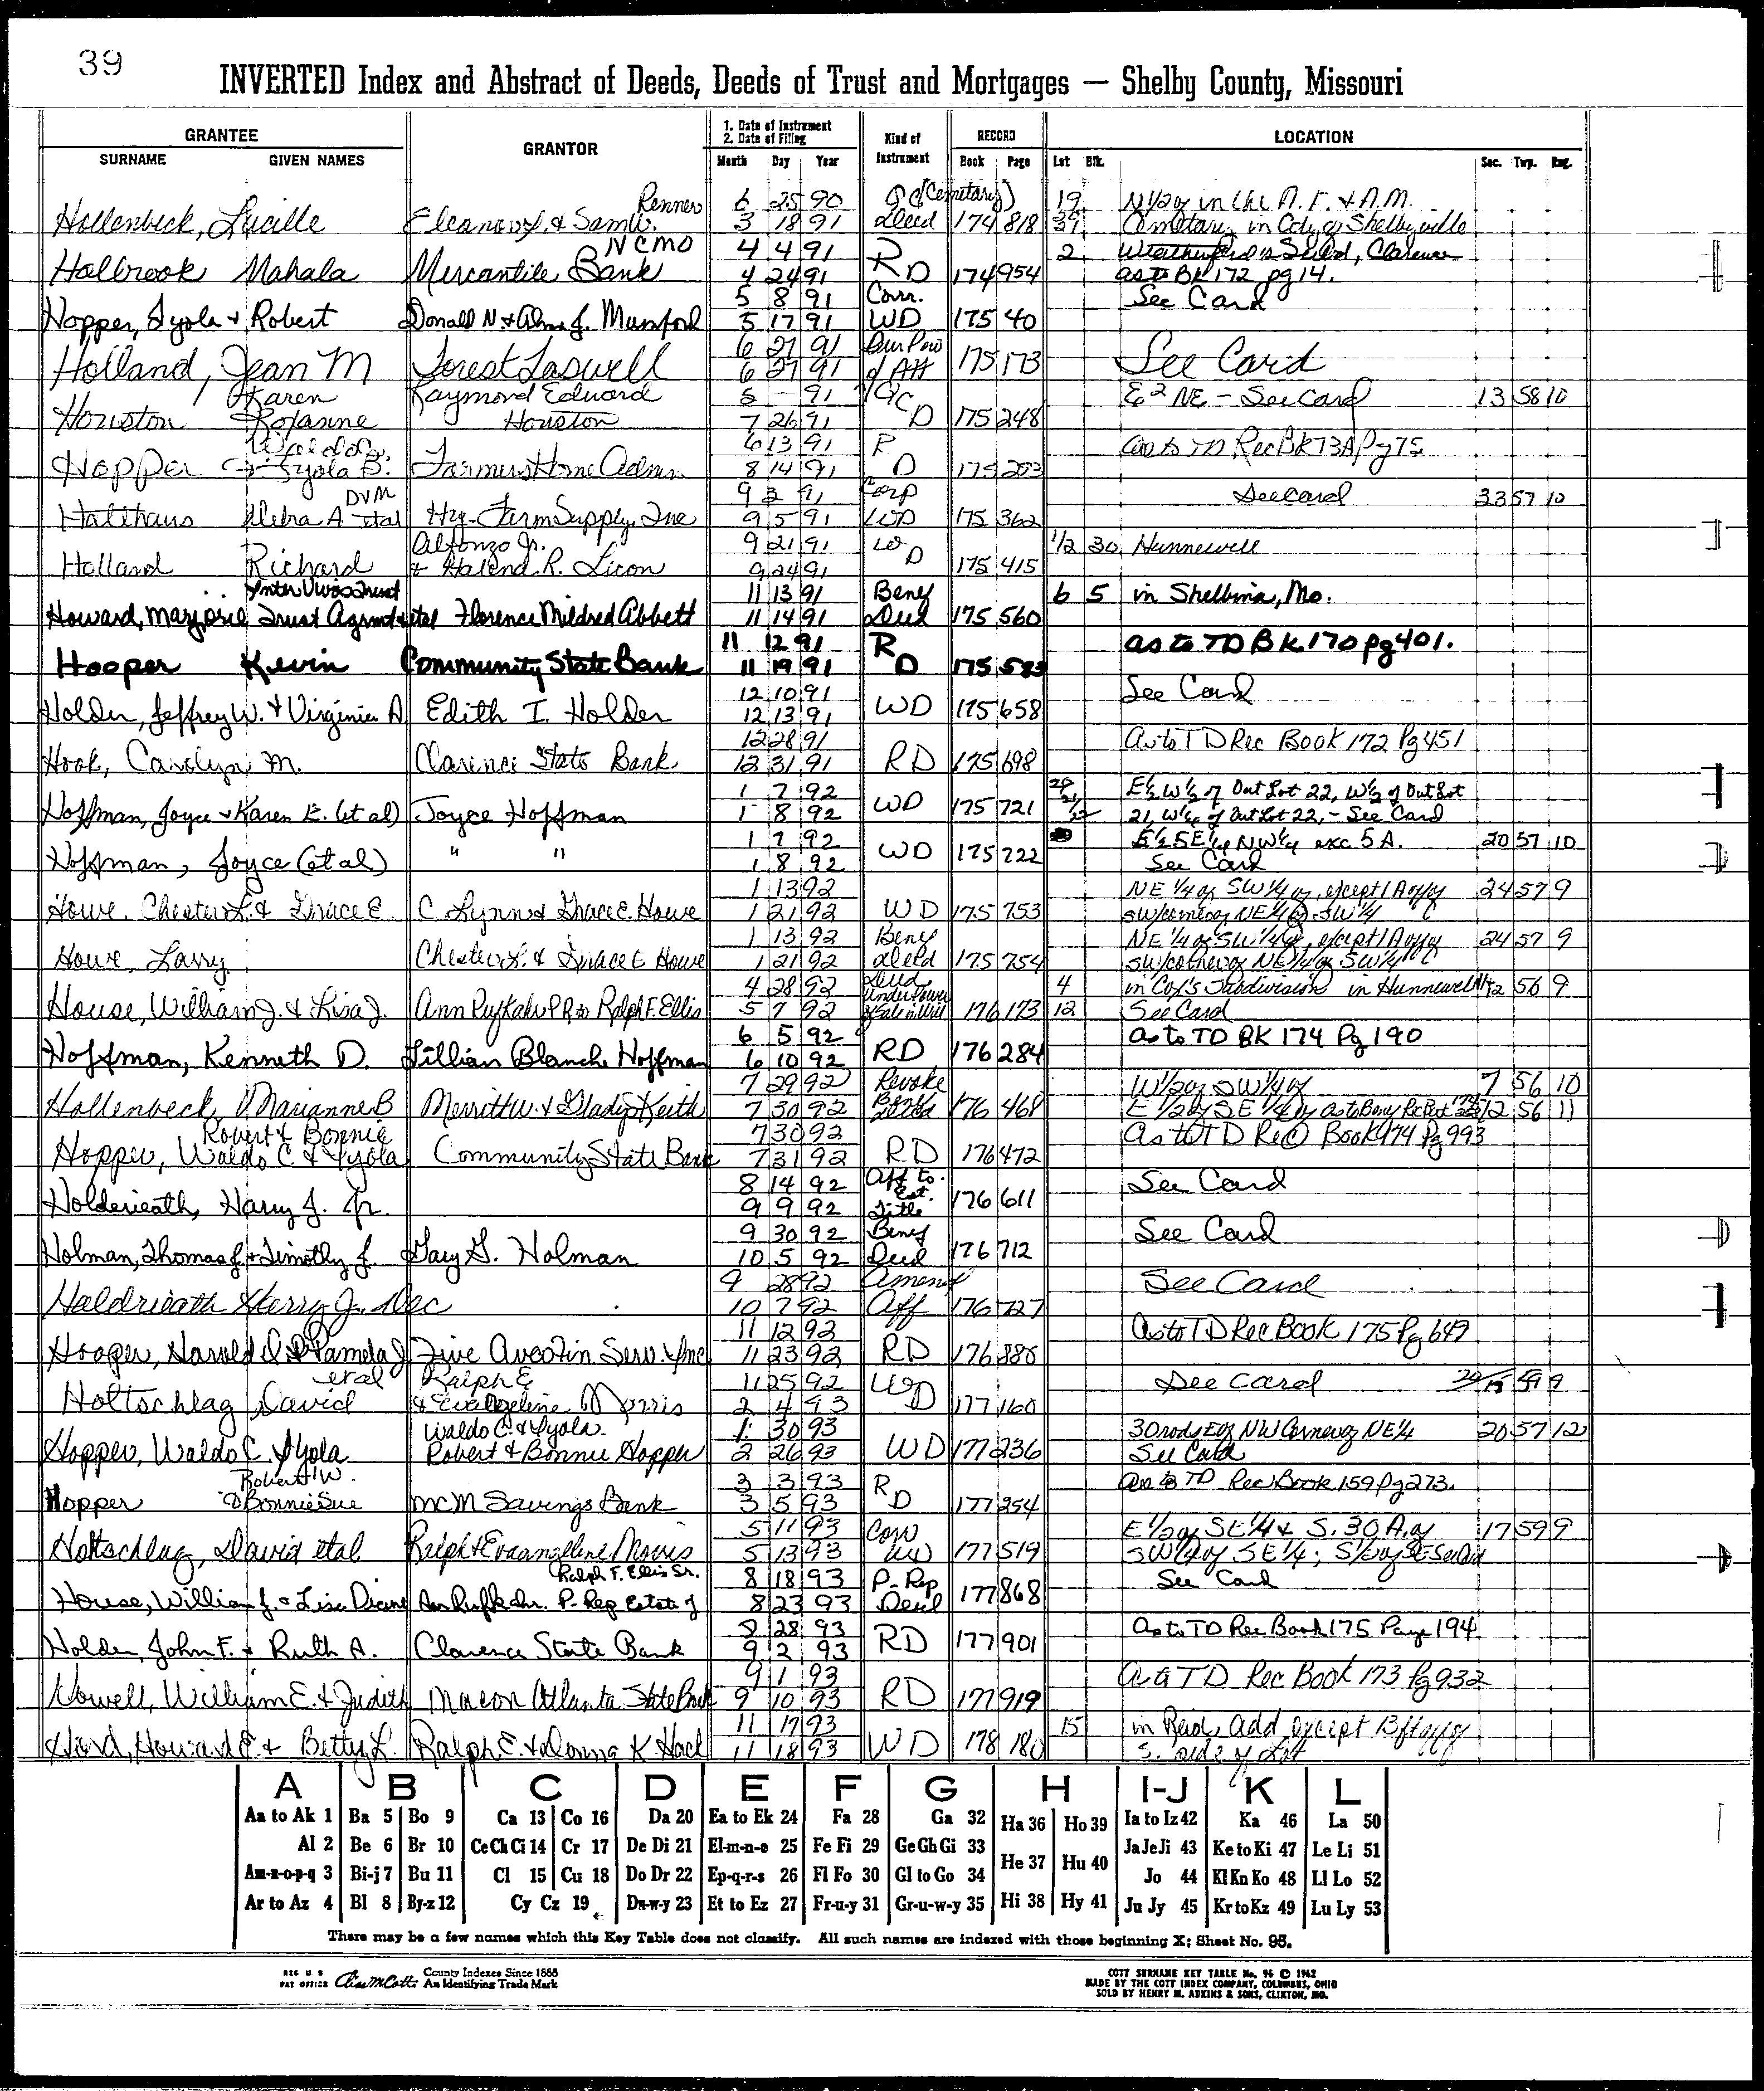 39
INVERTED Index and Abstract of Deeds, Deeds of Trust and Mortgages — Shelby County, Missouri
GRANTEE GRANTOR 1. Date of Instrument 2. Date of Filing Kind of Instrument RECORD LOCATION
SURNAME GIVEN NAMES Month Day Year Book Page Lot Blk. Sec. Twp. Rng.
Renner 6 25 90 (Cemetary) 19 N 1/2 of in the A. F. & A.M.
Hollenbeck, Lucille Eleanor & Sam W. 3 18 91 Deed 174 818 Cemetary in City of Shelbyville
NCMO 4 4 91 R 2
Holbrook Mahala Mercantile Bank 4 24 91 D 174 954 as to BK 172 pg 14.
5 8 91 Corr. See Card
Hopper, Iyola & Robert Donald N & Alma J. Munford 5 17 91 WD 175 40
6 27 91 Dur Pow
Holland, Jean M Forest Laswell 6 27 91 of Att 175 173 See Card
Karen Raymond Edward 5 — 91 QC E 2 NE - See Card 13 58 10
Houston Roxanne Houston 7 26 91 D 175 248
Waldo C. 6 13 91 R as to TD Rec BK 73A Pg 75
Hopper & Iyola B. Farmers Home Admn 8 14 91 D 175 283
DVM 9 3 91 Corp See Card 33 57 10
Holthaus Debra A etal Hy-Farm Supply, Inc 9 5 91 WD 175 362
Alfonzo Jr. 9 21 91 W 1/2 30 Hunnewell
Holland Richard & Halend R. Licon 9 24 91 D 175 415
Inter Vivos Trust 11 13 91 Benef 6 5 in Shelbina, Mo.
Howard, Marjorie Trust Agrmt etal Florence Mildred Abbett 11 14 91 Deed 175 560
11 12 91 R as to TD BK 170 pg 401.
Hooper Kevin Community State Bank 11 19 91 D 175 583
12 10 91 See Card
Holder, Jeffrey W. & Virginia A Edith I. Holder 12 13 91 WD 175 658
12 28 91 As to TD Rec Book 172 Pg 451
Hook, Carolyn M. Clarence State Bank 12 31 91 RD 175 698
1 7 92 E 1/2 W 1/2 of Out Lot 22, W 1/2 of Out Lot
Hoffman, Joyce & Karen E. (et al) Joyce Hoffman 1 8 92 WD 175 721 21, of Out Lot 22, - See Card
1 7 92 E 1/2 SE 1/4 NW 1/4 exc 5 A. 20 57 10
Hoffman, Joyce (et al) " " 1 8 92 WD 175 722 See Card
1 13 92 NE 1/4 of SW 1/4 of, except 1 A off of 24 57 9
Howe, Chester L. & Grace E C Lynn & Grace E. Howe 1 21 92 WD 175 753 SW/corner of NE 1/4 of SW 1/4
1 13 92 Benef NE 1/4 of SW 1/4 of, except 1 A off of 24 57 9
Howe, Larry Chester L. & Grace E Howe 1 21 92 Deed 175 754 SW/corner of NE 1/4 of SW 1/4
4 28 92 Deed Under Power 4 in Cox's Subdivision in Hunnewell 56 9
House, William J. & Lisa J. Ann PR to Ralph F. Ellis 5 7 92 of Sale in Will 176 173 12 See Card
6 5 92 as to TD BK 174 Pg 190
Hoffman, Kenneth D. Lillian Blanche Hoffman 6 10 92 RD 176 284
7 29 92 Revoke W 1/2 of SW 1/4 of 7 56 10
Hollenbeck, Marianne B Merritt W. & Gladys Keith 7 30 92 Benef Deed 176 468 E 1/2 of SE 1/4 of as to Benf 12 56 11
Robert & Bonnie 7 30 92 As to T D Rec Book 174 Pg 993
Hopper, Waldo C & Iyola Community State Bank 7 31 92 RD 176 472
8 14 92 Aff to Est. See Card
Holderieath, Harry J. Jr. 9 9 92 Title 176 611
9 30 92 Benef See Card
Holman, Thomas J. & Timothy J. Gary G. Holman 10 5 92 Deed 176 712
9 28 92 Amend See Card
Haldrieath Harry J. Dec 10 7 92 Aff 176 727
11 12 92 As to TD Rec Book 175 Pg 649
Hooper, Harold D & Pamela J Five Avco Fin. Serv. Inc 11 23 92 RD 176 886
etal Ralph E 11 25 92 W See Card 9
Holtschlag David & Evangeline Morris 2 4 93 D 177 160
Waldo C. & Iyola 1 30 93 30 rods E of NW Corner of NE 1/4 20 57 12
Hopper, Waldo C. Iyola Robert & Bonnie Hopper 2 26 93 WD 177 236 See Card
Robert W. 3 3 93 R as to TD Rec Book 159 Pg 273.
Hopper & Bonnie Sue MCM Savings Bank 3 5 93 D 177 254
5 11 93 Corr E 1/2 of SE 1/4 & S. 30 A. of 17 59 9
Holtschlag, David etal Ralph & Evangeline Morris 5 13 93 WD 177 519 SW 1/4 of SE 1/4; S 1/2 of
Ralph F. Ellis Sr. 8 18 93 P-Rep See Card
House, William J. & Lisa Diane Ann P. Rep Estate of 8 23 93 Deed 177 868
8 28 93 As to TD Rec Book 175 Page 194
Holder, John F. & Ruth A. Clarence State Bank 9 2 93 RD 177 901
9 1 93 As to TD Rec Book 173 Pg 932
Howell, William E. & Judith Macon Atlanta State Bank 9 10 93 RD 177 919
11 17 93 15 in Reid, Add except 13 ft off of
Hord, Howard E. & Betty L. Ralph E. & Donna K. Hoel 11 18 93 WD 178 180 S. side of Lot
A B C D E F G H I-J K L
Aa to Ak 1 Ba 5 Bo 9 Ca 13 Co 16 Da 20 Ea to Ek 24 Fa 28 Ga 32 Ha 36 Ho 39 Ia to Iz 42 Ka 46 La 50
Al 2 Be 6 Br 10 Ce Ch Ci 14 Cr 17 De Di 21 El-m-n-o 25 Fe Fi 29 Ge Gh Gi 33 He 37 Hu 40 Ja Je Ji 43 Ke to Ki 47 Le Li 51
Am-n-o-p-q 3 Bi-j 7 Bu 11 Cl 15 Cu 18 Do Dr 22 Ep-q-r-s 26 Fl Fo 30 Gl to Go 34 Jo 44 Kl Kn Ko 48 Ll Lo 52
Ar to Az 4 Bl 8 By-z 12 Cy Cz 19 Du-w-y 23 Et to Ez 27 Fr-u-y 31 Gr-u-w-y 35 Hi 38 Hy 41 Ju Jy 45 Kr to Kz 49 Lu Ly 53
There may be a few names which this Key Table does not classify. All such names are indexed with those beginning X; Sheet No. 95.
REG U S PAT OFFICE County Indexes Since 1888
An Identifying Trade Mark
COTT SURNAME KEY TABLE No. 96 © 1962
MADE BY THE COTT INDEX COMPANY, COLUMBUS, OHIO
SOLD BY HENRY M. ADKINS & SONS, CLINTON, MO.